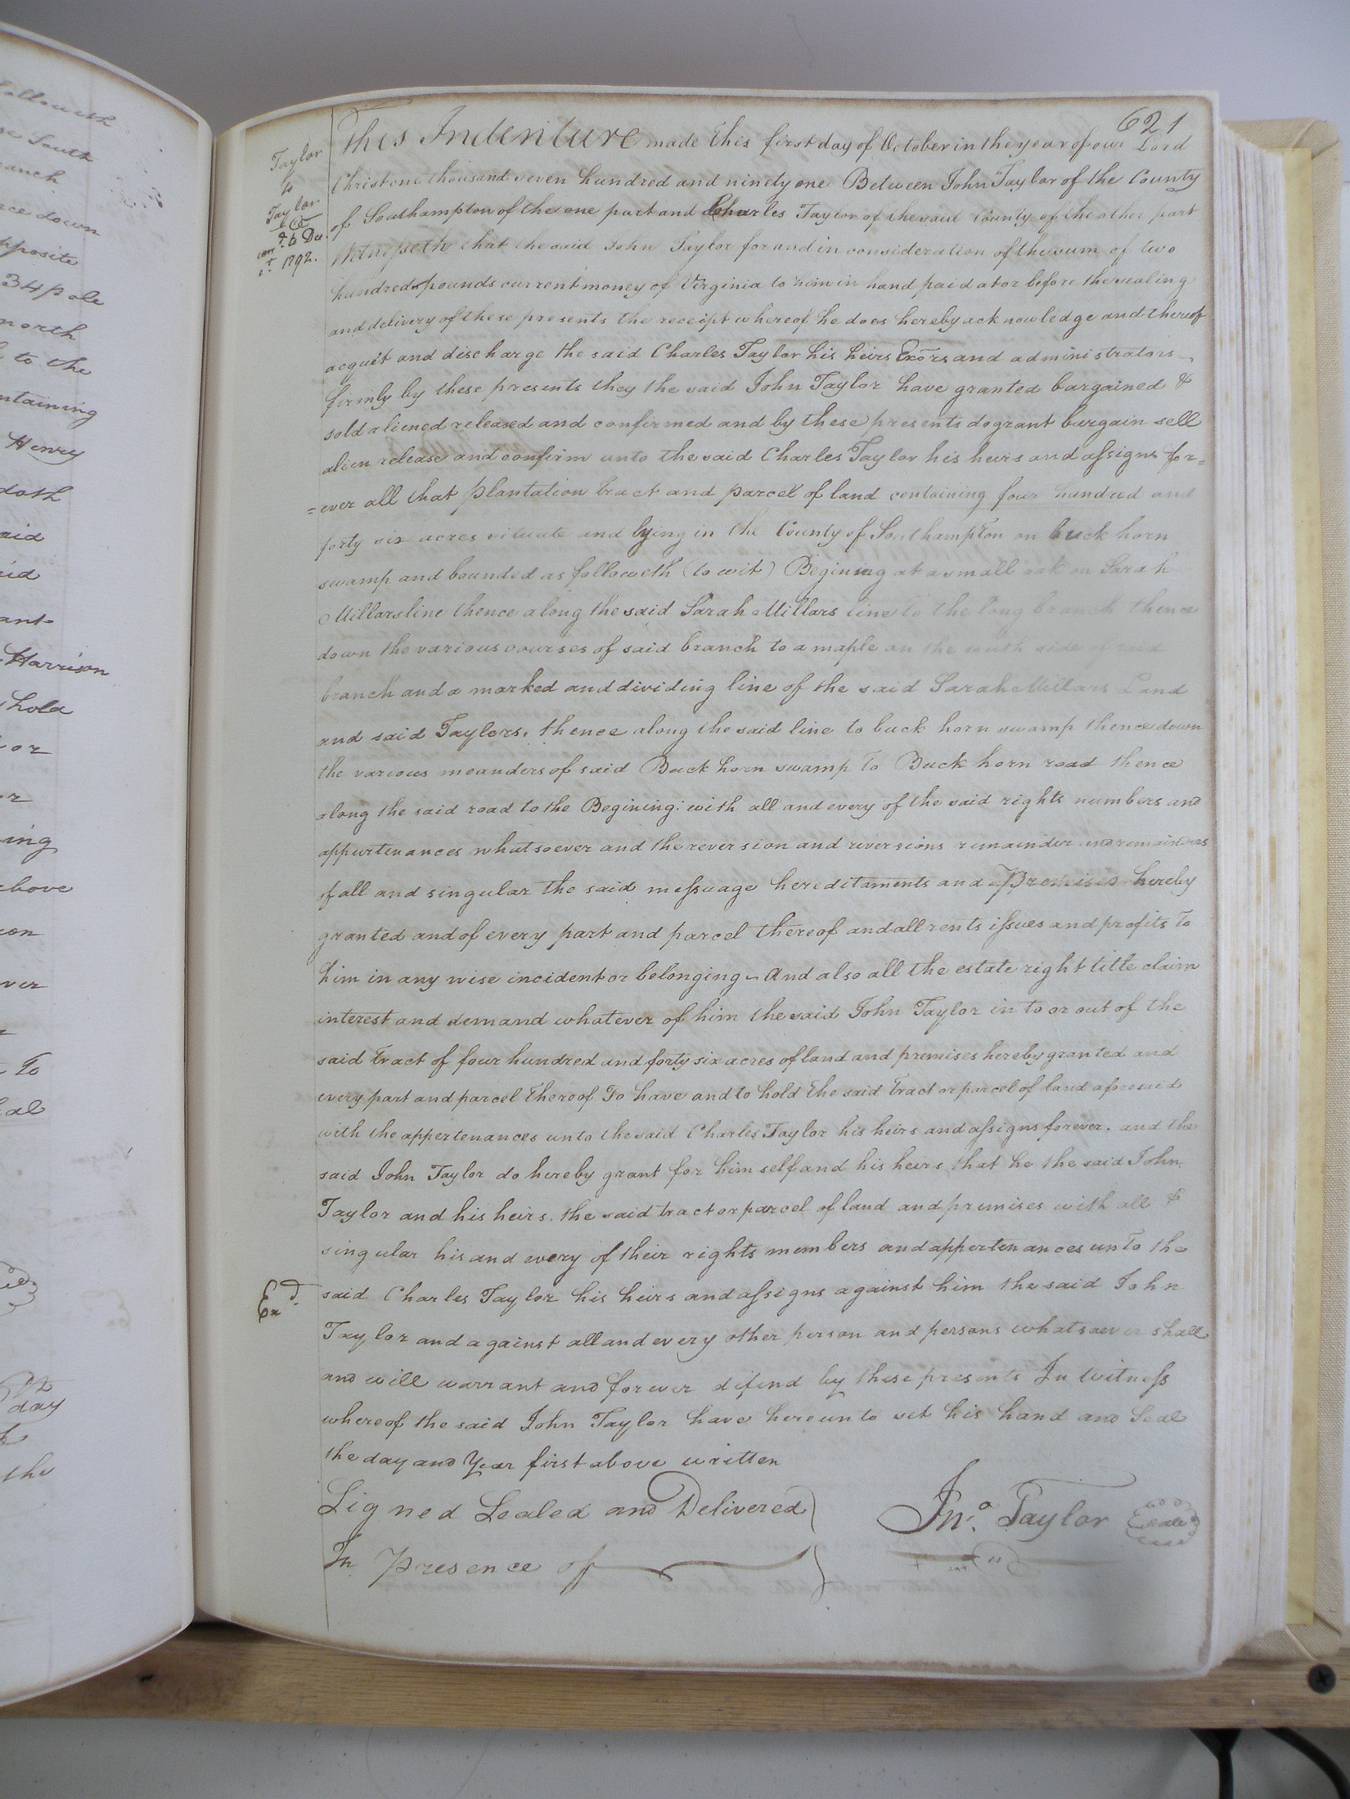 621
Taylor
to
Taylor
This Indenture made this first day of October in the year of our Lord
Christ one thousand seven hundred and ninety one Between John Taylor of the County
of Southampton of the one part and Charles Taylor of the said County of the other part
Witnesseth that the said John Taylor for and in consideration of the sum of two
hundred pounds current money of Virginia to him in hand paid at or before the sealing
and delivery of these presents the receipt whereof he does hereby acknowledge and thereof
acquit and discharge the said Charles Taylor his heirs Exors and administrators
firmly by these presents they the said John Taylor have granted bargained &
sold aliened released and confirmed and by these presents do grant bargain sell
alien release and confirm unto the said Charles Taylor his heirs and assigns for=
=ever all that plantation tract and parcel of land containing four hundred and
forty six acres situate and lying in the County of Southampton on buck horn
swamp and bounded as followeth (to wit) Begining at a small oak on Sarah
Millars line thence along the said Sarah Millars line to the long branch thence
down the various courses of said branch to a maple on the south side of said
branch and a marked and dividing line of the said Sarah Millars Land
and said Taylors, thence along the said line to buck horn swamp thence down
the various meanders of said Buck horn swamp to Buck horn road thence
along the said road to the Begining: with all and every of the said rights numbers and
appurtenances whatsoever and the reversion and reversions remainder and remainders
of all and singular the said messuage hereditaments and Premises hereby
granted and of every part and parcel thereof and all rents issues and profits to
him in any wise incident or belonging And also all the estate right title claim
interest and demand whatever of him the said John Taylor in to or out of the
said tract of four hundred and forty six acres of land and premises hereby granted and
every part and parcel thereof To have and to hold the said tract or parcel of land aforesaid
with the appertenances unto the said Charles Taylor his heirs and assigns forever. and the
said John Taylor do hereby grant for him self and his heirs that he the said John
Taylor and his heirs. the said tract or parcel of land and premises with all &
singular his and every of their rights members and appertenances unto the
Exd.
said Charles Taylor his heirs and assigns against him the said John
Taylor and against all and every other person and persons whatsoever shall
and will warrant and forever difend by these presents In witness
whereof the said John Taylor have hereunto set his hand and Seal
the day and Year first above written
Signed Sealed and Delivered
In presence of
Jno. Taylor Seale